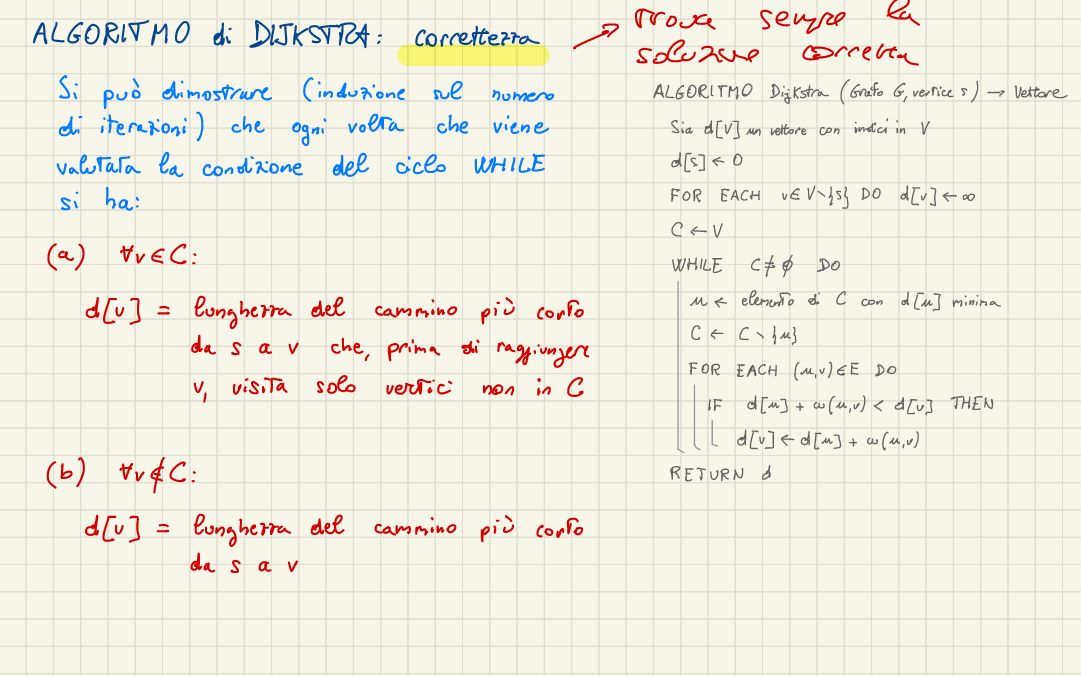 ALGORITMO di DIJKSTRA: correttezza
trova sempre la
soluzione corretta
Si può dimostrare (induzione sul numero
di iterazioni) che ogni volta che viene
valutata la condizione del ciclo WHILE
si ha:
(a) ∀v∈C:
d[v] = lunghezza del cammino più corto
da s a v che, prima di raggiungere
v, visita solo vertici non in C
(b) ∀v∉C:
d[v] = lunghezza del cammino più corto
da s a v
ALGORITMO Dijkstra (Grafo G, vertice s) → Vettore
Sia d[V] un vettore con indici in V
d[s] ← 0
FOR EACH v∈V∖{s} DO d[v] ← ∞
C ← V
WHILE C ≠ ∅ DO
u ← elemento di C con d[u] minima
C ← C ∖ {u}
FOR EACH (u,v)∈E DO
IF d[u] + ω(u,v) < d[v] THEN
d[v] ← d[u] + ω(u,v)
RETURN d